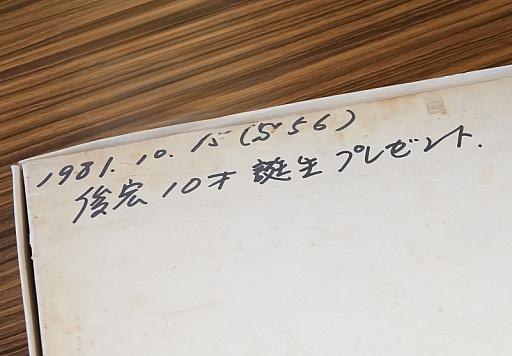 1981.10.15(S56)
俊宏10才誕生プレゼント.